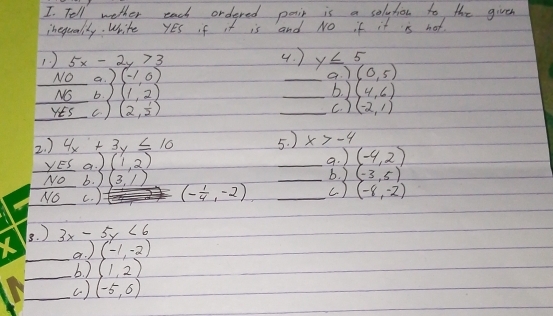 I. Tell wether each ordered pair is a solution to the given
inequality. Write YES if it is and NO if it is not.
1.) 5x - 2y > 3
NO a.) (-1, 0)
NO b.) (1, 2)
YES c.) (2, 1/5)
2.) 4x + 3y ≤ 10
YES a.) (1, 2)
NO b.) (3, 1)
NO c.) (-1/4, -2)
3.) 3x - 5y < 6
a.) (-1, -2)
b.) (1, 2)
c.) (-5, 6)
4.) y ≤ 5
a.) (0, 5)
b.) (4, 6)
c.) (-2, 1)
5.) x > -4
a.) (-4, 2)
b.) (-3, 5)
c.) (-8, -2)